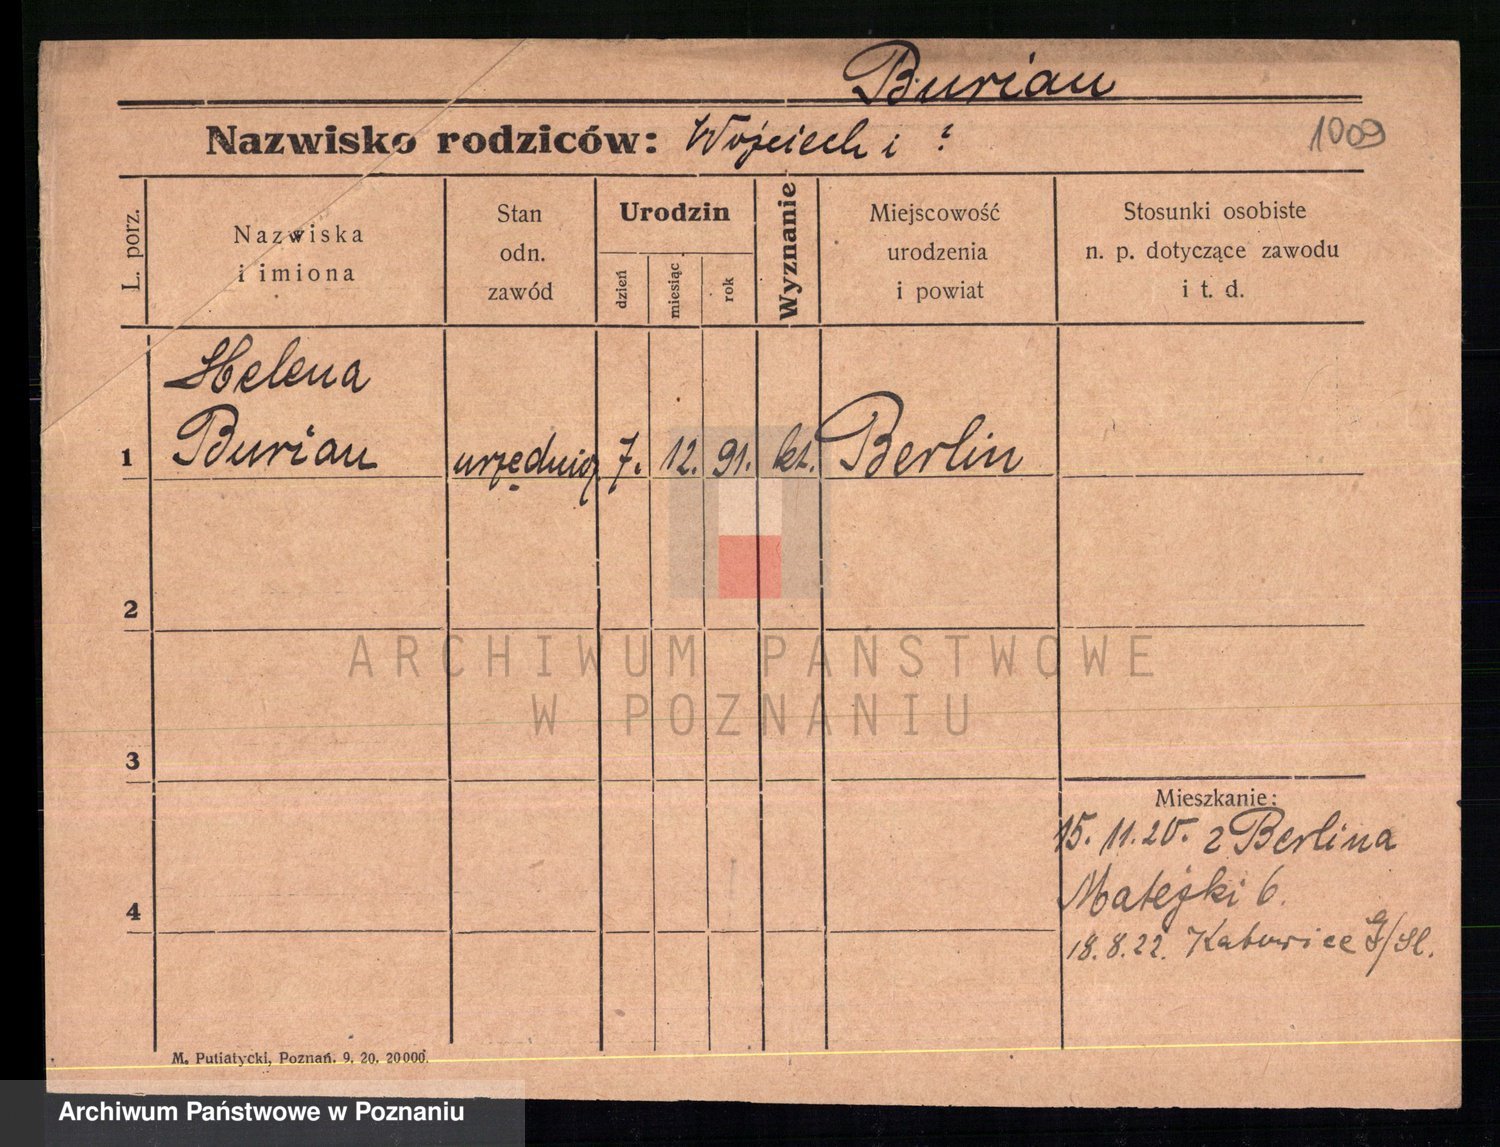 Burian
Nazwisko rodziców: Wojciech i ?
1009
L. porz.
Nazwiska
i imiona
Stan
odn.
zawód
Urodzin
dzień
miesiąc
rok
Wyznanie
Miejscowość
urodzenia
i powiat
Stosunki osobiste
n. p. dotyczące zawodu
i t. d.
Helena
1 Burian 7. 12. 91. kt. Berlin
2
ARCHIWUM PAŃSTWOWE
W POZNANIU
3
Mieszkanie:
15. 11. 20. z Berlina
Matejki 6.
4
18. 8. 22. Katowice G/Sl.
M. Putiatycki, Poznań. 9. 20. 20000.
Archiwum Państwowe w Poznaniu